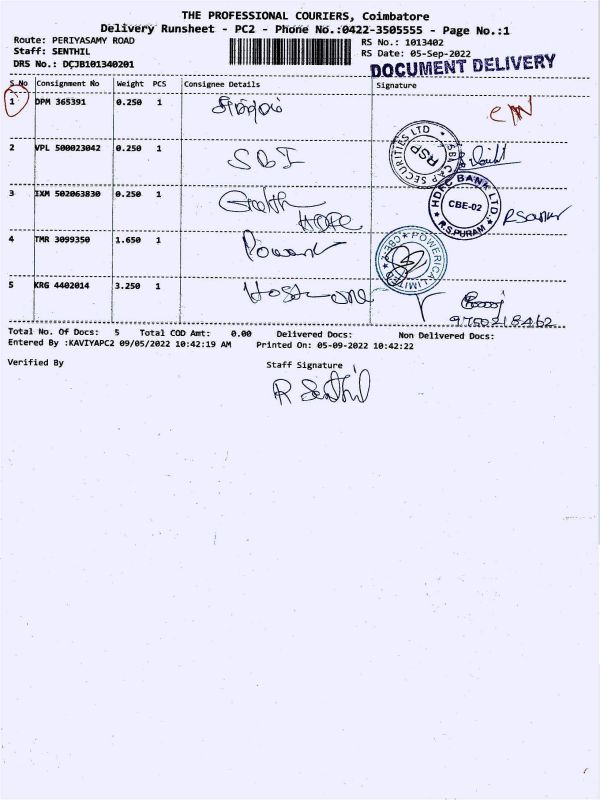 THE PROFESSIONAL COURIERS, Coimbatore
Delivery Runsheet - PC2 - Phone No.:0422-3505555 - Page No.:1
Route: PERIYASAMY ROAD
RS No.: 1013402
Staff: SENTHIL
RS Date: 05-Sep-2022
DRS No.: DCJB101340201
DOCUMENT DELIVERY
S No Consignment No Weight PCS Consignee Details Signature
1 DPM 365391 0.250 1
2 VPL 500023042 0.250 1 SBI
SBI CAP SECURITIES LTD RSP
3 IXM 502063830 0.250 1
HDFC
HDFC BANK LTD. CBE-02 R.S.PURAM
4 TMR 3099350 1.650 1
POWERICA LIMITED CBE-2
5 KRG 4402014 3.250 1
Total No. Of Docs: 5 Total COD Amt: 0.00 Delivered Docs: Non Delivered Docs:
Entered By :KAVIYAPC2 09/05/2022 10:42:19 AM Printed On: 05-09-2022 10:42:22
Verified By Staff Signature
R Senthil